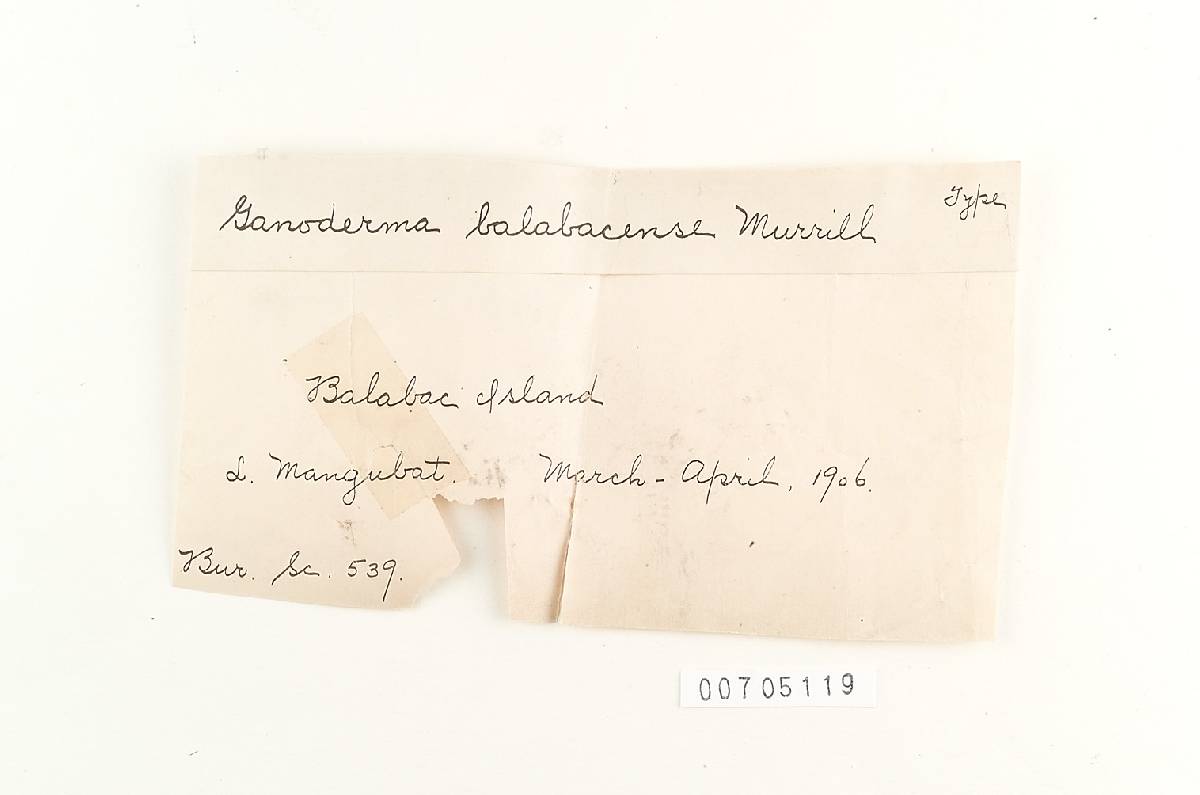 Ganoderma balabacense Murrill Type
Balabac Island
L. Mangubat. March - April, 1906.
Bur. Sc. 539.
00705119